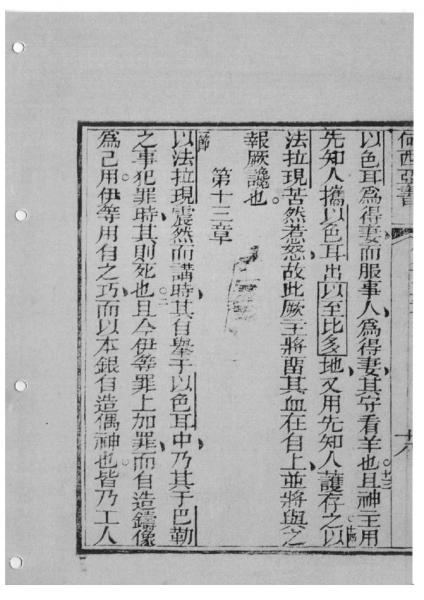 何西亞書
以色耳爲得妻而服事人、爲得妻、其守看羊也。十三且神王用
先知人攜以色耳出以至比多地、又用先知人護存之。十四以
法拉現苦然惹怒、故此厥王將畱其血在自上、並將與之
報厥讒也。
第十三章
節以法拉現震然而講時、其自舉于以色耳中、乃其于巴勒
之事犯罪時、其則死也。二且今伊等罪上加罪、而自造鑄像
爲己用。伊等用自之巧、而以本銀自造偶神也。皆乃工人